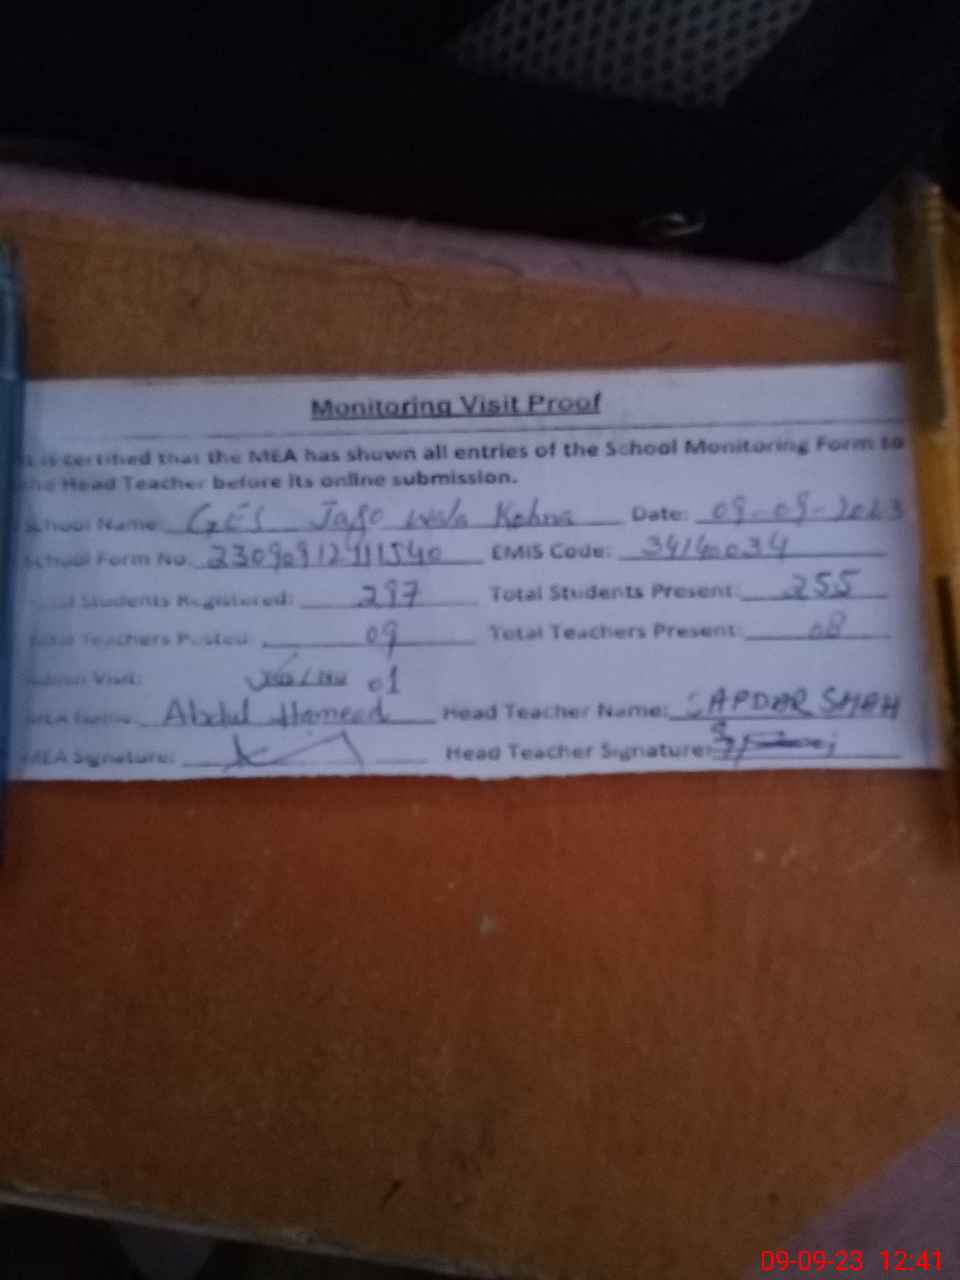 Monitoring Visit Proof
It is certified that the MEA has shown all entries of the School Monitoring Form to
the Head Teacher before its online submission.
School Name: GES Wala Kohna Date: 09-09-2023
School Form No. EMIS Code: 34140034
Total Students Registered: 297 Total Students Present: 255
Total Teachers Posted 09 Total Teachers Present: 08
Admin Visit: Yes/No 01
MEA Name: Abdul Hameed Head Teacher Name: SAPDAR SHAH
MEA Signature: Head Teacher Signature:
09-09-23 12:41